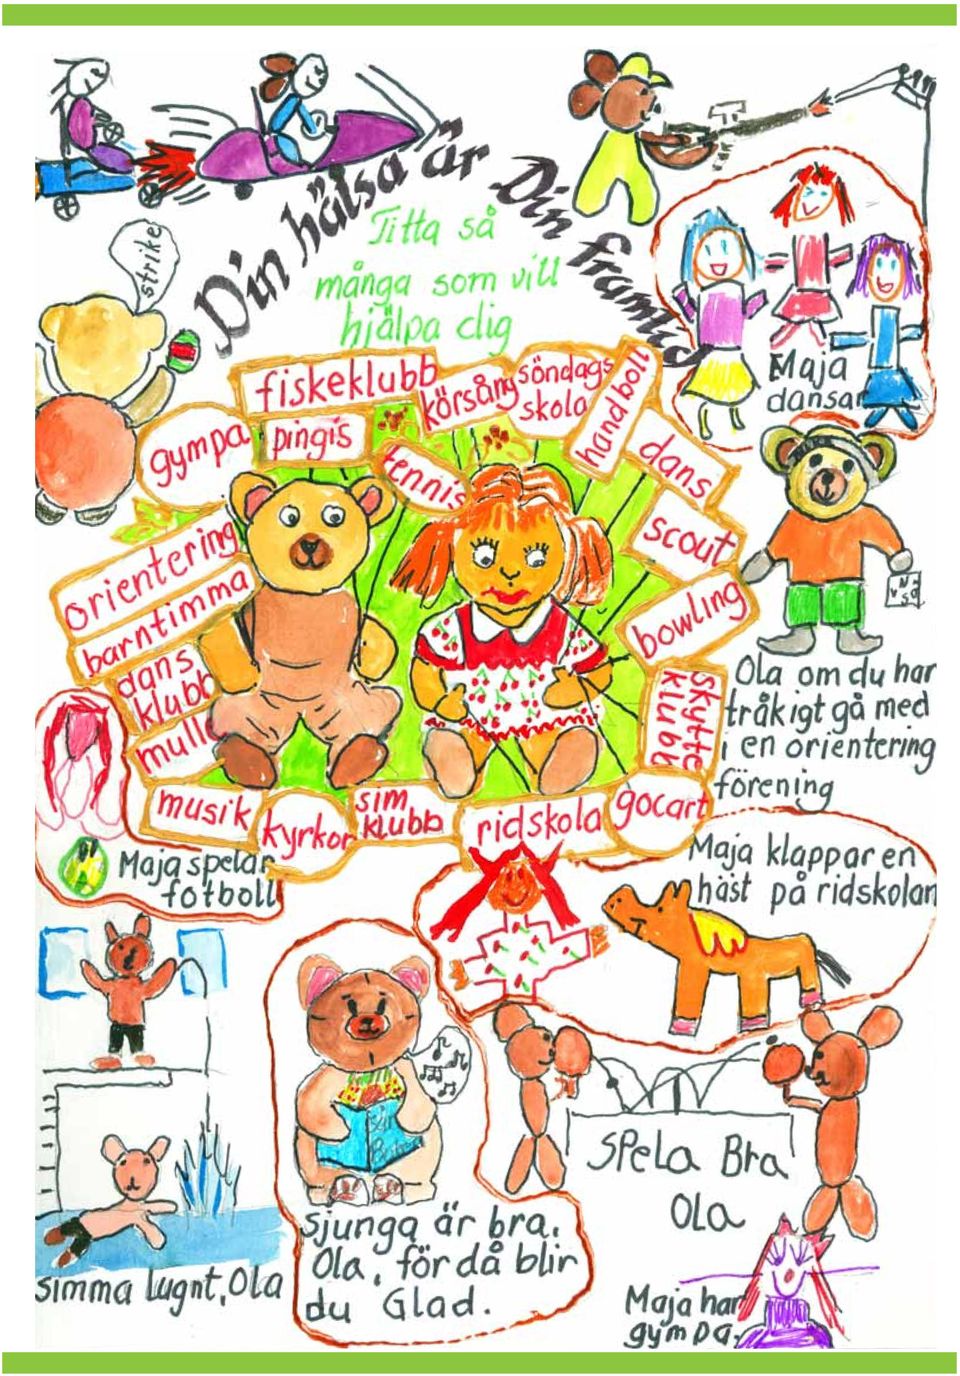 Din hälsa är Din framtid
Titta så
många som vill
hjälpa dig
strike
Maja
dansar
fiskeklubb
körsång
söndags
skola
handboll
gympa
pingis
tennis
dans
orientering
scout
barntimma
bowling
dans
klubb
skytte
klubb
mulle
musik
kyrkor
sim
klubb
ridskola
gocart
Ola om du har
tråkigt gå med
i en orientering
förening
Maja spelar
fotboll
Maja klappar en
häst på ridskolan
Spela Bra
OLA
simma lugnt, Ola
sjunga är bra,
Ola, för då blir
du Glad.
Maja har
gympa.